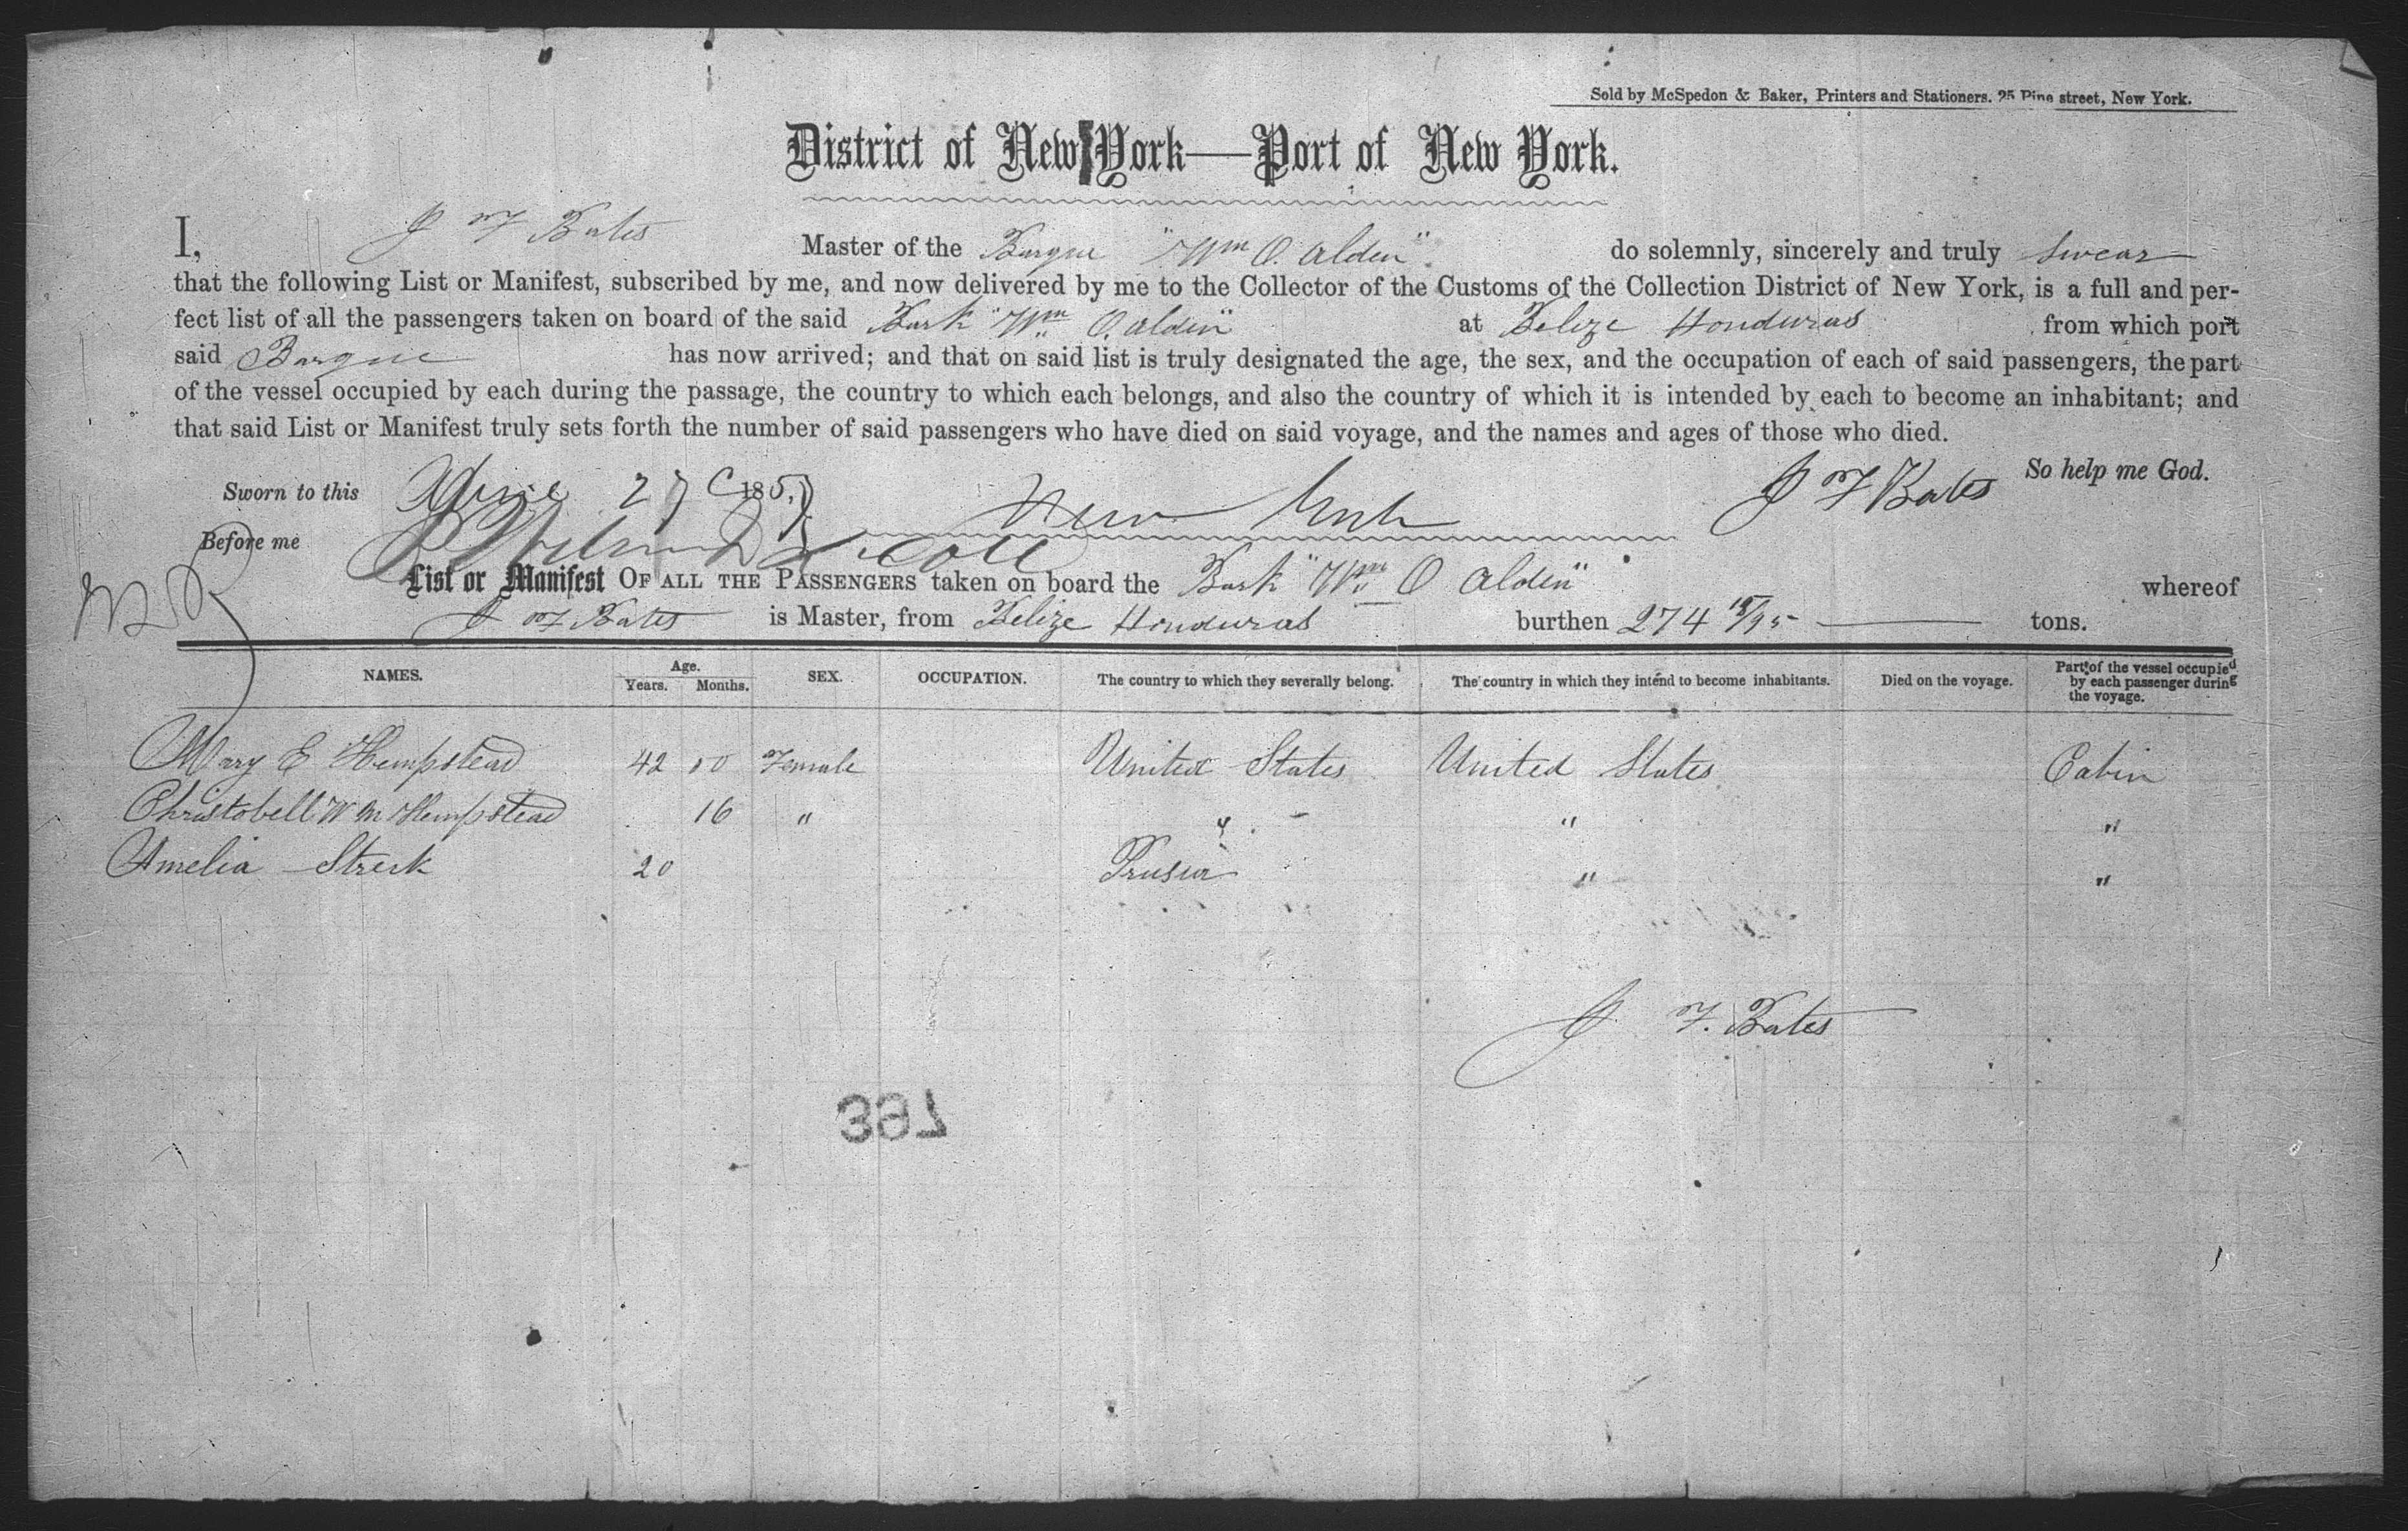 Sold by McSpedon & Baker, Printers and Stationers. 25 Pine street, New York.
District of New York—Port of New York.
I, J F Bates Master of the Barque "Wm O. Alden" do solemnly, sincerely and truly swear
that the following List or Manifest, subscribed by me, and now delivered by me to the Collector of the Customs of the Collection District of New York, is a full and per-
fect list of all the passengers taken on board of the said Bark "Wm O. Alden" at Belize Honduras from which port
said Barque has now arrived; and that on said list is truly designated the age, the sex, and the occupation of each of said passengers, the part
of the vessel occupied by each during the passage, the country to which each belongs, and also the country of which it is intended by each to become an inhabitant; and
that said List or Manifest truly sets forth the number of said passengers who have died on said voyage, and the names and ages of those who died.
So help me God.
Sworn to this 27 185 New York J F Bates
Before me
List or Manifest OF ALL THE PASSENGERS taken on board the Bark "Wm O Alden" whereof
J F Bates is Master, from Belize Honduras burthen 274 tons.
NAMES. Age. Years. Months. SEX. OCCUPATION. The country to which they severally belong. The country in which they intend to become inhabitants. Died on the voyage. Part of the vessel occupied by each passenger during the voyage.
Mary E Hempstead 42 00 Female United States United States Cabin
Christobell W M Hempstead 16 " " " "
Amelia Streck 20 Prusia " "
J. F. Bates
397